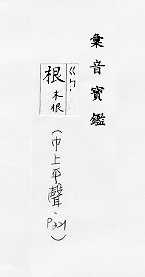 彙音寶鑑
ㄍㄣ
根 木根
(巾上平聲,P221)